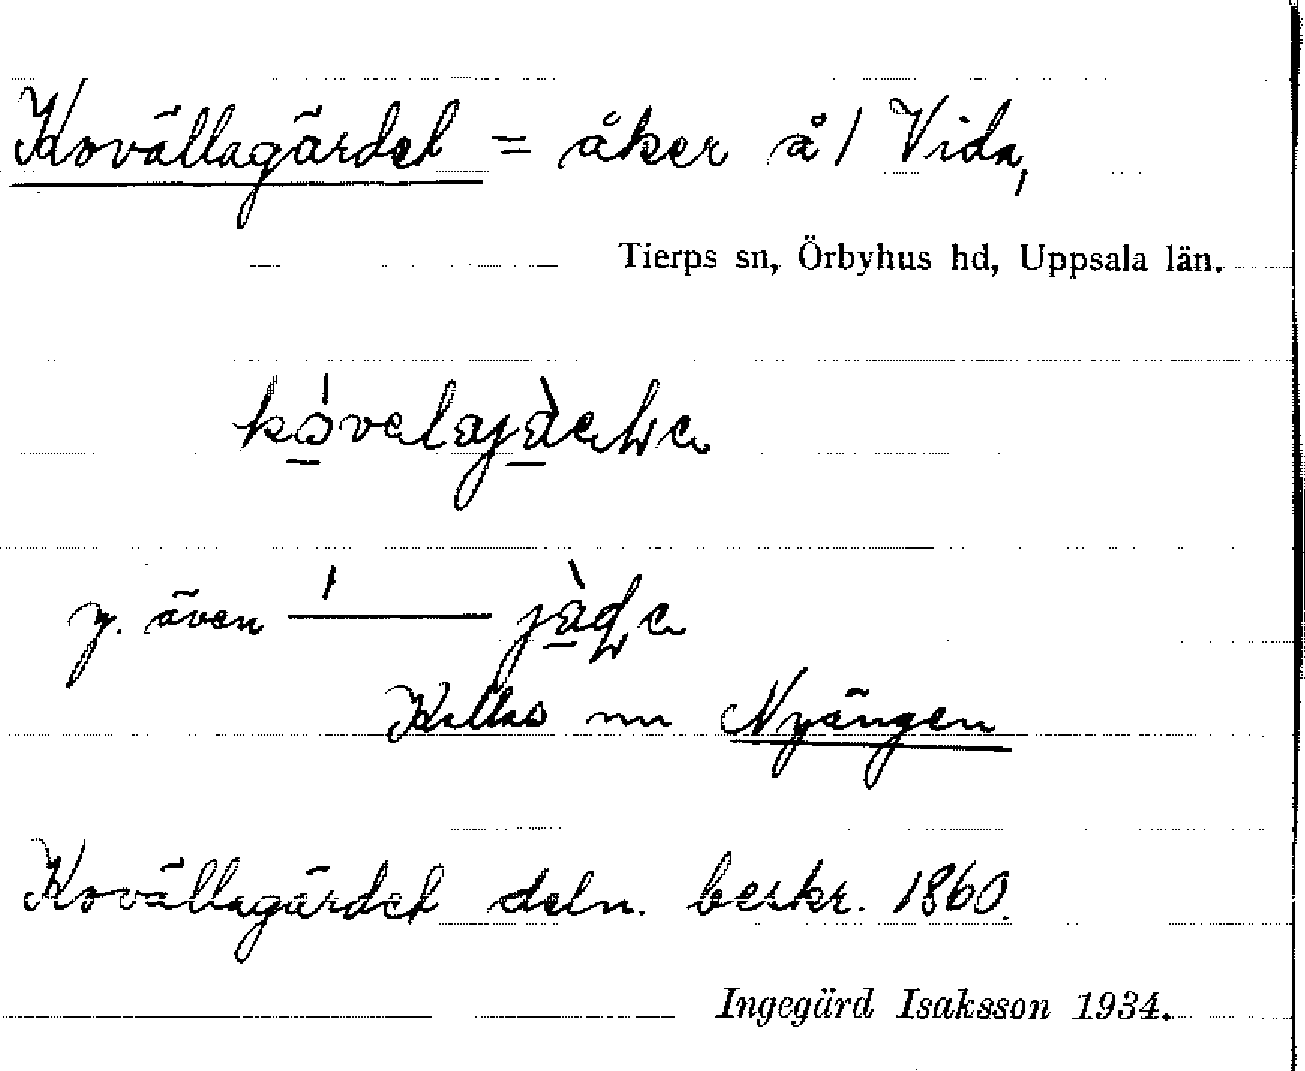 Kovällagärdet = åker å/ Vida,
Tierps sn, Örbyhus hd, Uppsala län.
y. även
Kallas nu Nyängen
Kovällagärdet deln. beskr. 1860.
Ingegärd Isaksson 1934.